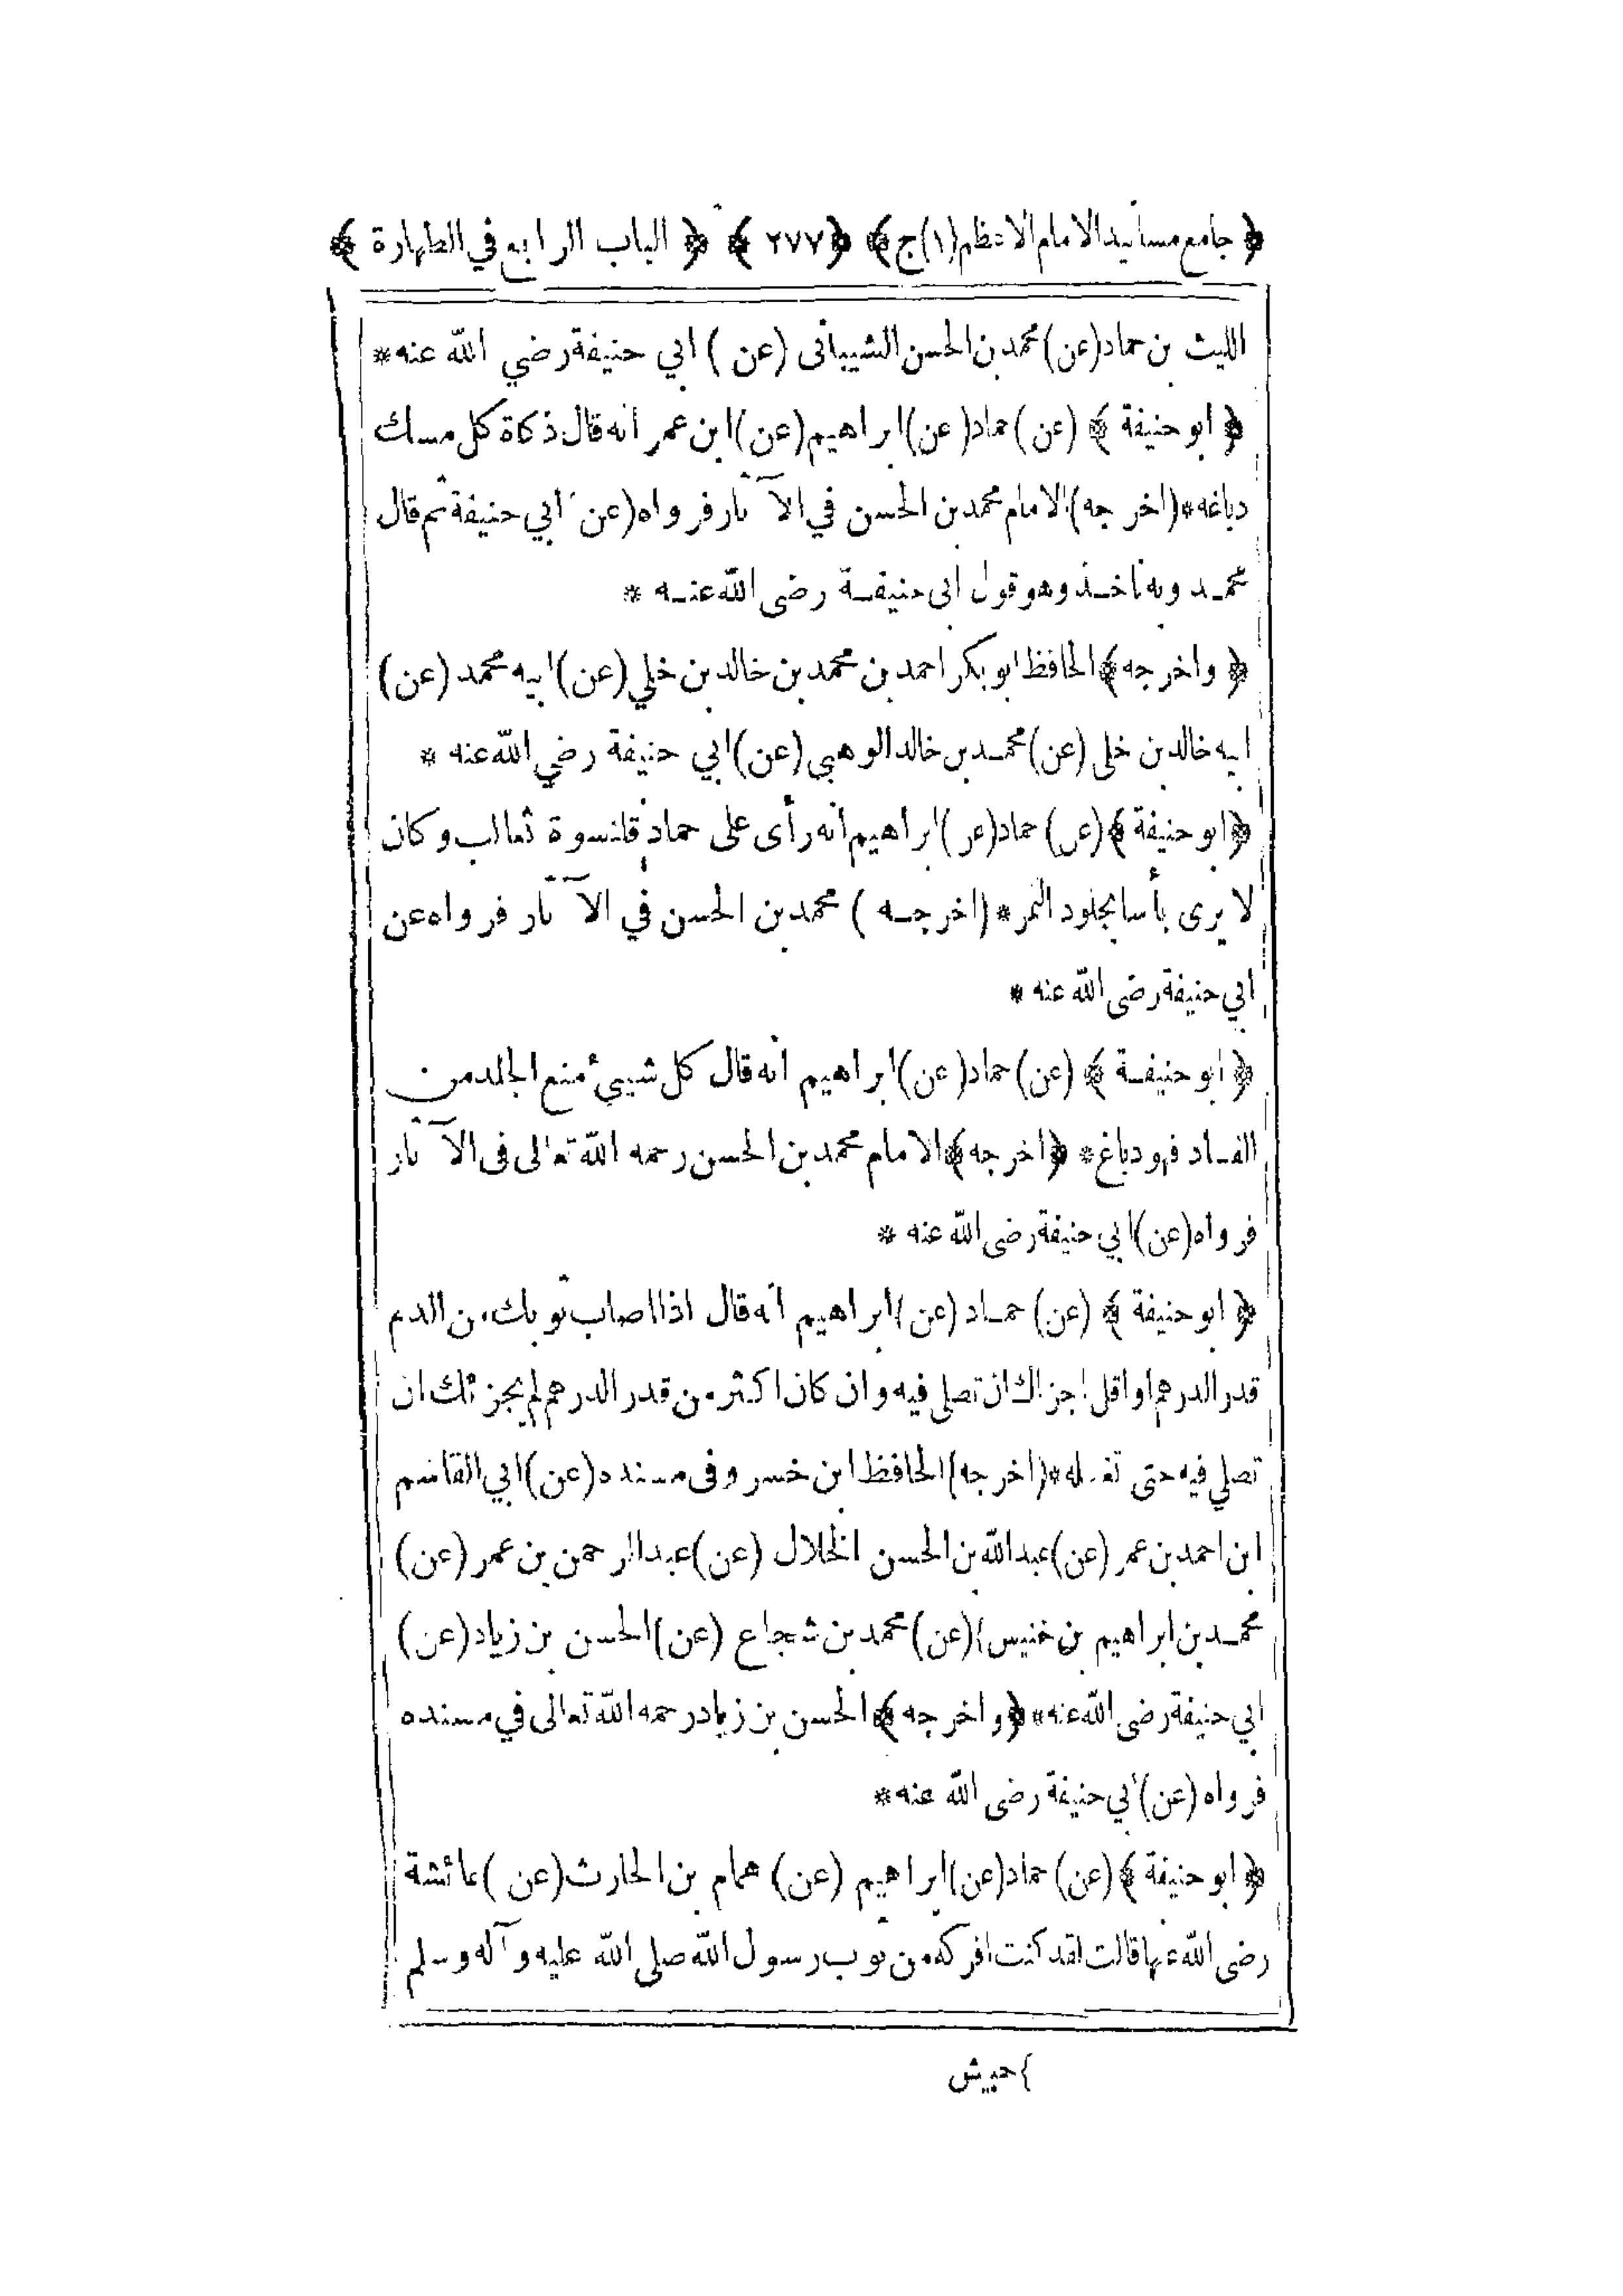 ﴿ جامع مسانيد الامام الاعظم (١) ج ﴾ ﴿ ٢٧٧ ﴾ ﴿ الباب الرابع في الطهارة ﴾
الليث بن حماد (عن) محمد بن الحسن الشيبانى (عن) ابي حنيفة رضي الله عنه *
﴿ ابو حنيفة ﴾ (عن) حماد (عن) ابراهيم (عن) ابن عمر انه قال ذكاة كل مسك
دباغه * (اخرجه) الامام محمد بن الحسن في الآثار فرواه (عن) ابي حنيفة ثم قال
محمد وبه ناخذ وهو قول ابى حنيفة رضى الله عنه *
﴿ واخرجه ﴾ الحافظ ابو بكر احمد بن محمد بن خالد بن خلي (عن) ابيه محمد (عن)
ابيه خالد بن خلى (عن) محمد بن خالد الوهبي (عن) ابي حنيفة رضي الله عنه *
﴿ ابو حنيفة ﴾ (عن) حماد (عن) ابراهيم انه رأى على حماد قلنسوة ثعالب وكان
لا يرى بأسا بجلود النمر * (اخرجه) محمد بن الحسن في الآثار فرواه عن
ابي حنيفة رضى الله عنه *
﴿ ابو حنيفة ﴾ (عن) حماد (عن) ابراهيم انه قال كل شيئ منع الجلد من
الفساد فهو دباغ * ﴿ اخرجه ﴾ الامام محمد بن الحسن رحمه الله تعالى فى الآثار
فرواه (عن) ابي حنيفة رضى الله عنه *
﴿ ابو حنيفة ﴾ (عن) حماد (عن) ابراهيم انه قال اذا اصاب ثوبك من الدم
قدر الدرهم او اقل اجزاك ان تصلى فيه وان كان اكثر من قدر الدرهم لم يجزئك ان
تصلي فيه حتى تغسله * (اخرجه) الحافظ ابن خسرو فى مسنده (عن) ابي القاسم
ابن احمد بن عمر (عن) عبد الله بن الحسن الخلال (عن) عبد الرحمن بن عمر (عن)
محمد بن ابراهيم بن خنيس} (عن) محمد بن شجاع (عن) الحسن بن زياد (عن)
ابي حنيفة رضى الله عنه * ﴿ واخرجه ﴾ الحسن بن زياد رحمه الله تعالى في مسنده
فرواه (عن) ابي حنيفة رضى الله عنه *
﴿ ابو حنيفة ﴾ (عن) حماد (عن) ابراهيم (عن) همام بن الحارث (عن) عائشة
رضى الله عنها قالت لقد كنت افركه من ثوب رسول الله صلى الله عليه وآله وسلم
} حبيش